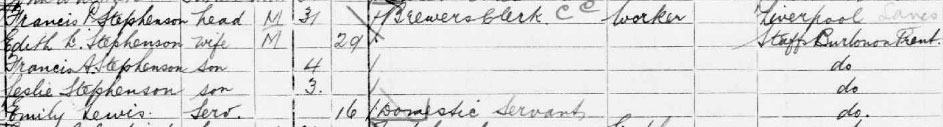 Francis C Stephenson head M 31 Brewers Clerk CC Worker Liverpool Lancs
Edith E. Stephenson wife M 29 Staffs Burton on Trent.
Francis A. Stephenson son 4 do
Leslie Stephenson son 3. do
Emily Lewis. Serv. 16 Domestic Servant do.